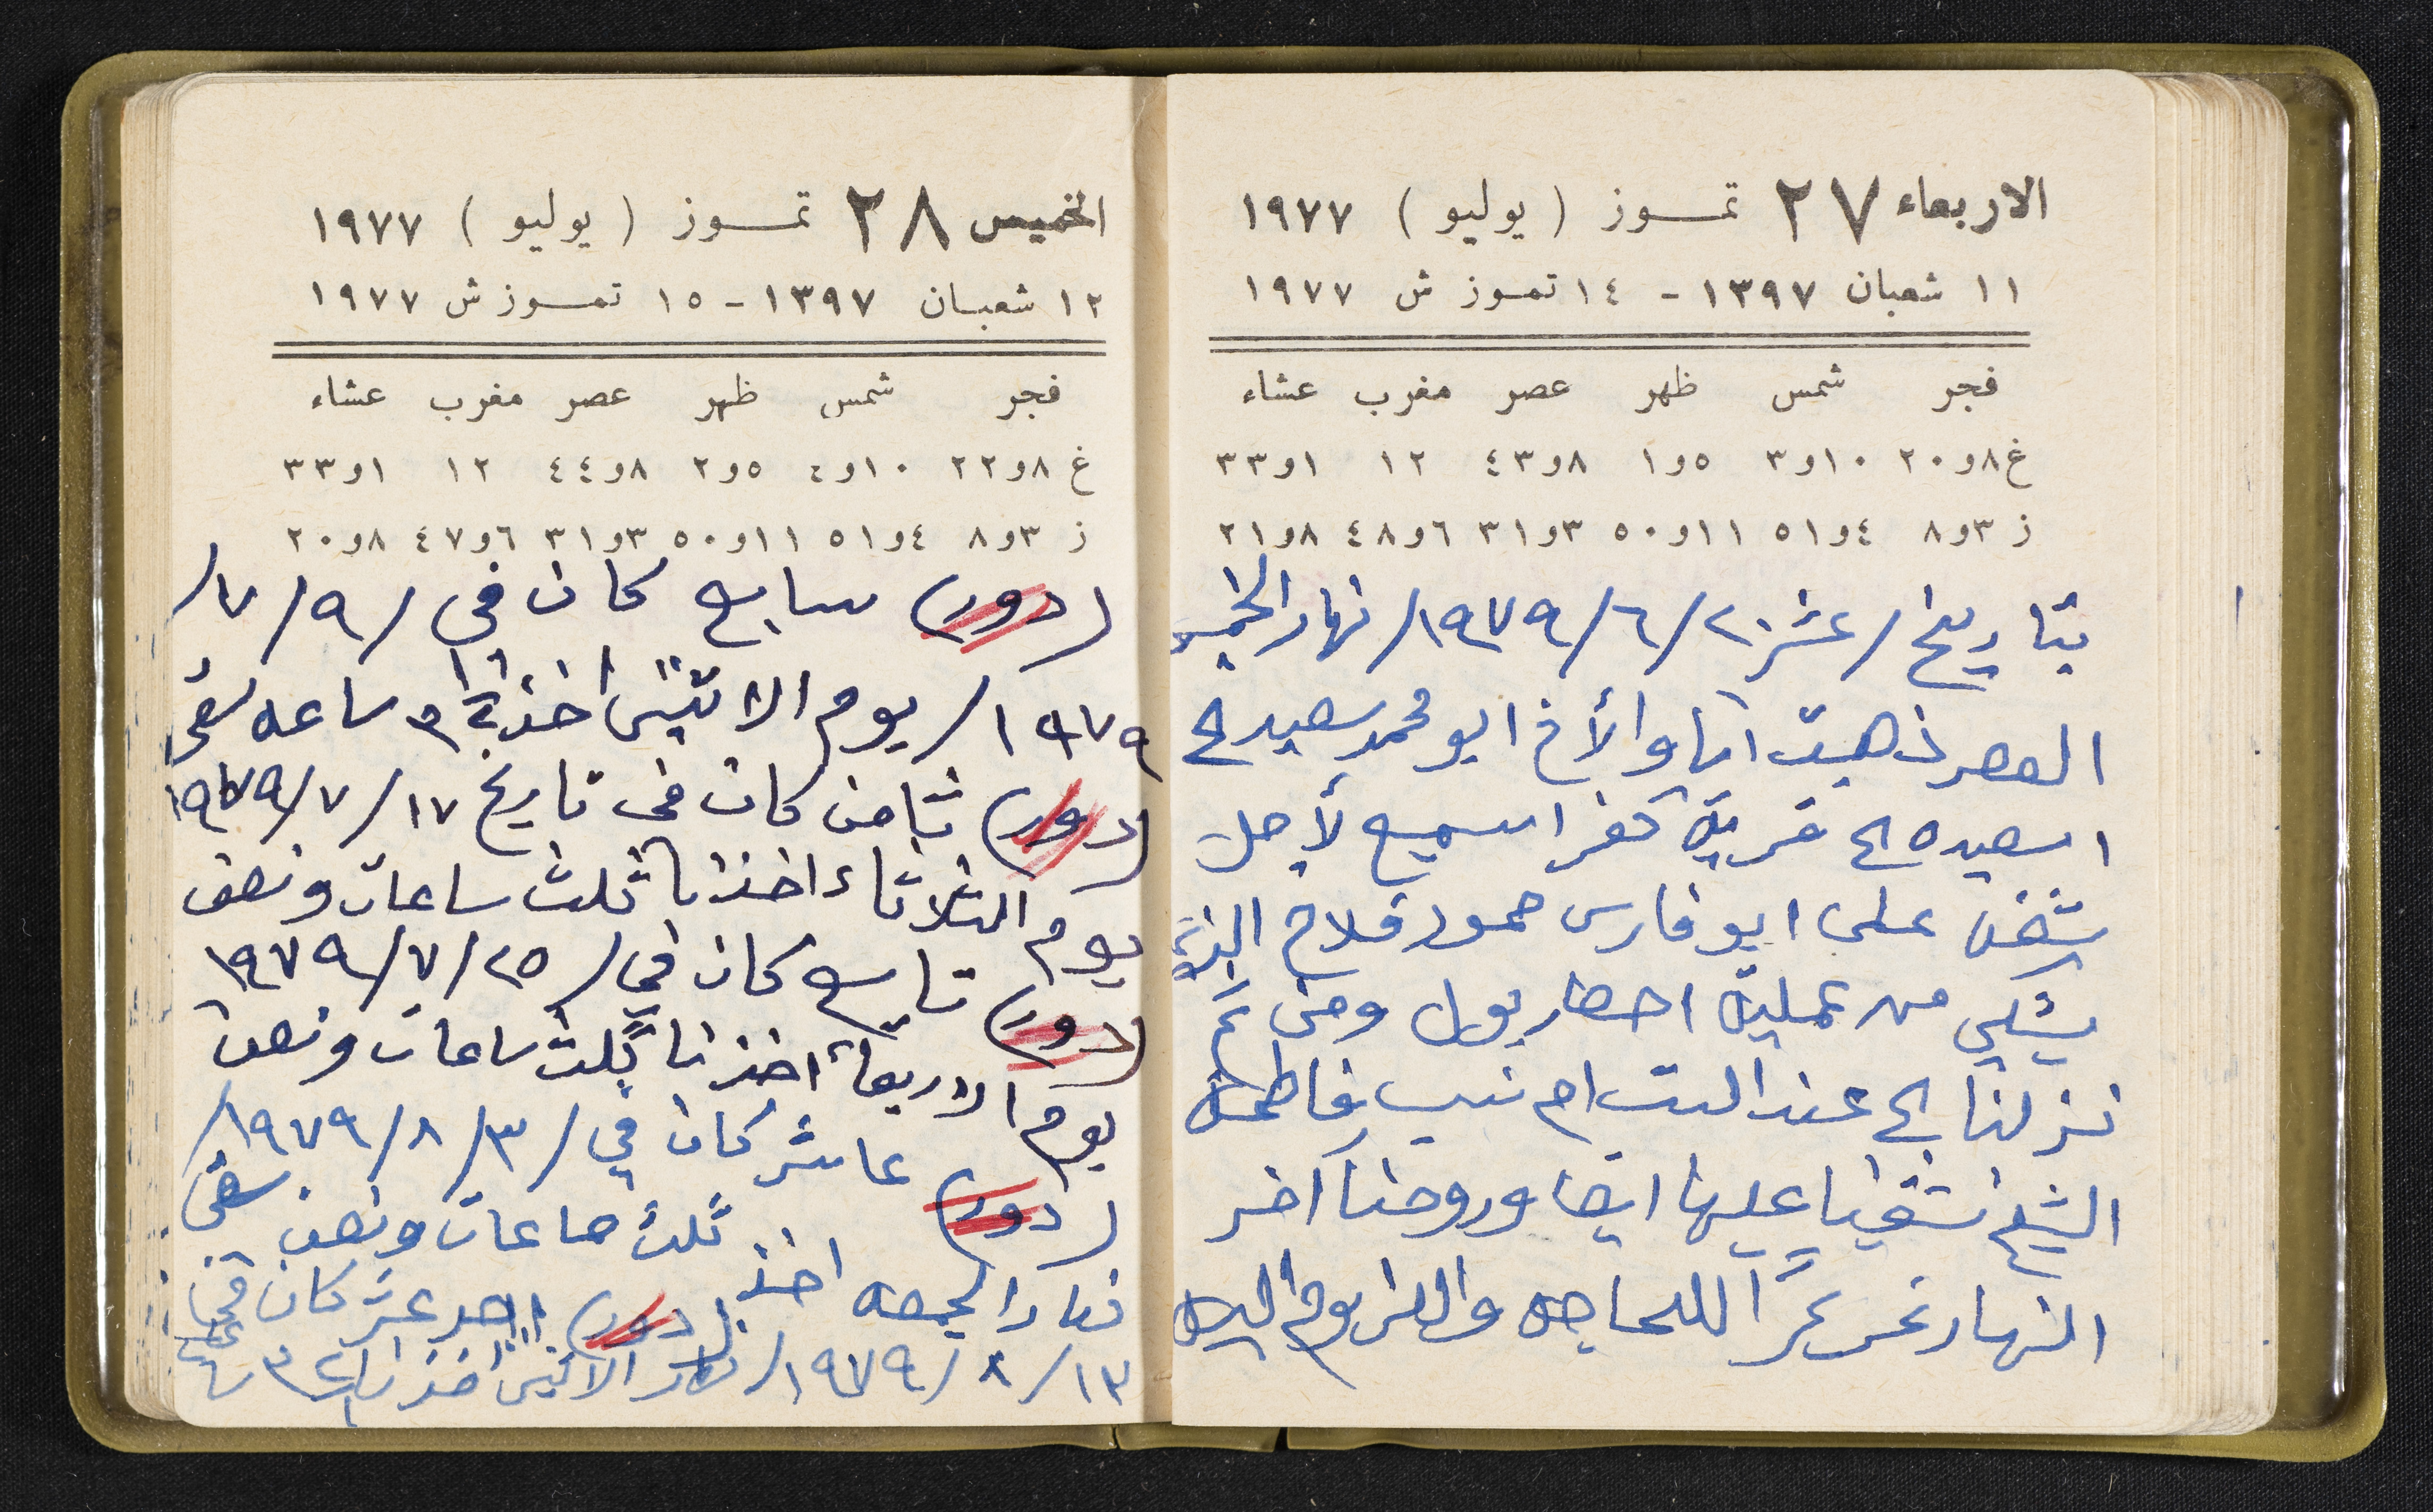 الاربعاء ٢٧ تمـوز ( يوليو ) ١٩٧٧
١١ شعبان ١٣٩٧ - ١٤ تموز ش ١٩٧٧
فجر شمس ظهر عصر مغرب عشاء
غ ٨و٢٠ ١٠و٣ ٥و١ ٨و٤٣ ١٢ ١و٣٣
ز ٣و٨ ٤و٥١ ١١و٥٠ ٣و٣١ ٦و٤٨ ٨و٢١
بتاريخ / عشر ٢٠/٦/١٩٧٩/ نهار
العصر ذهبت انا والأخ ابو محمد سعيد
اسعيد الى قرية كفر اسميع لأجل
نشقف على ابو فارس حمود فلاح الذي
يشكي من عملية احصار بول ومن ثم
نزلنا الى عند الست ام نسيب فاطمة
الشيخ نشقفنا عليها ايضا وروحنا اخر
النهار نحن
الخميس ٢٨ تمـوز ( يوليو ) ١٩٧٧
١٢ شعبـان ١٣٩٧ - ١٥ تمـوز ش ١٩٧٧
فجر شمس ظهر عصر مغرب عشاء
غ ٨و٢٢ ١٠و٤ ٥و٢ ٨و٤٤ ١٢ ١و٣٣
ز ٣و٨ ٤و٥١ ١١و٥٠ ٣و٣١ ٦و٤٧ ٨و٢٠
(دور) سابع كان في /٩/٧/
١٩٧٩/ يوم الاثنين اخذنا ساعه سقي
(دور) ثامن كان في تاريخ ١٧/٧/١٩٧٩
يوم الثلاثاء اخذنا ثلث ساعات ونصف
(دور) تاسع كان في /٢٥/٧/١٩٧٩
يوم الاربعاء اخذنا ثلث ساعات ونصف
(دور) عاشر كان في /٣/٨/١٩٧٩/
نهار الجمعه اخذ ثلث ساعات ونصف سقي
(دور) احد عشر كان في
١٣/٨/١٩٧٩/ نهار الاثنين اخذنا